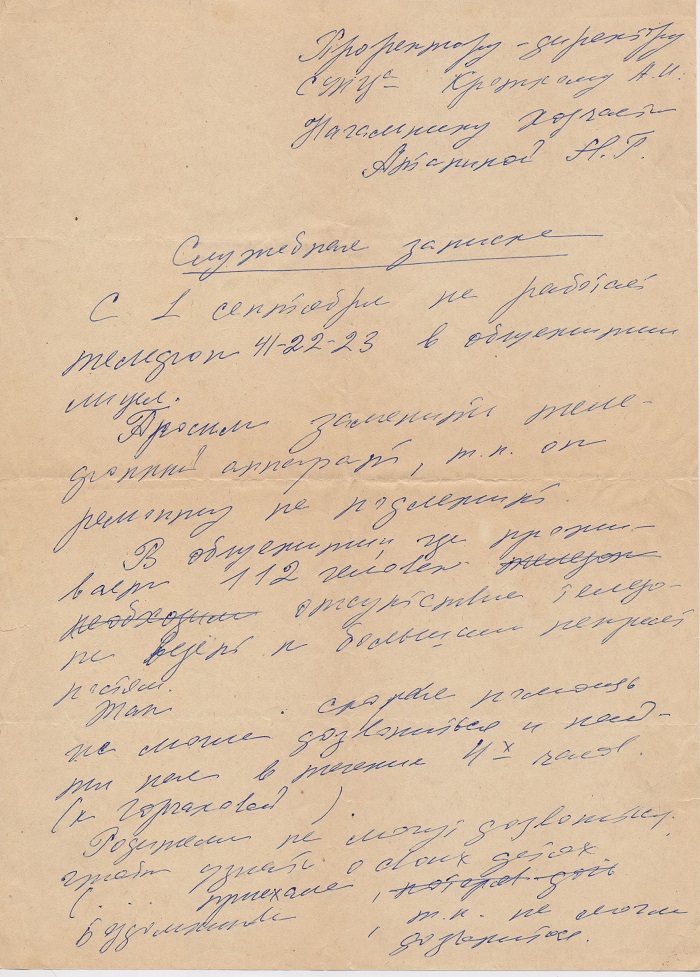 Проректору-директору
СУНЦа Кроткому А.И.
Начальнику хозчасти
Н.Г.
Служебная записка
С 1 сентября не работает
телефон 41-22-23 в общежитии
лицея.
Просим заменить теле-
фонный аппарат, т.к. он
ремонту не подлежит.
В общежитии где прожи-
вает 112 человек телефон
необходим отсутствие телефо-
на ведет к большим неприят
ностям.
Так скорая помощь
не могла дозвониться и най-
ти нас в течение 4х часов.
(к Горчаковой)
Родители не могут дозвониться,
чтобы узнать о своих детях
(... приехала, который день
, т.к. не могли
дозвониться.